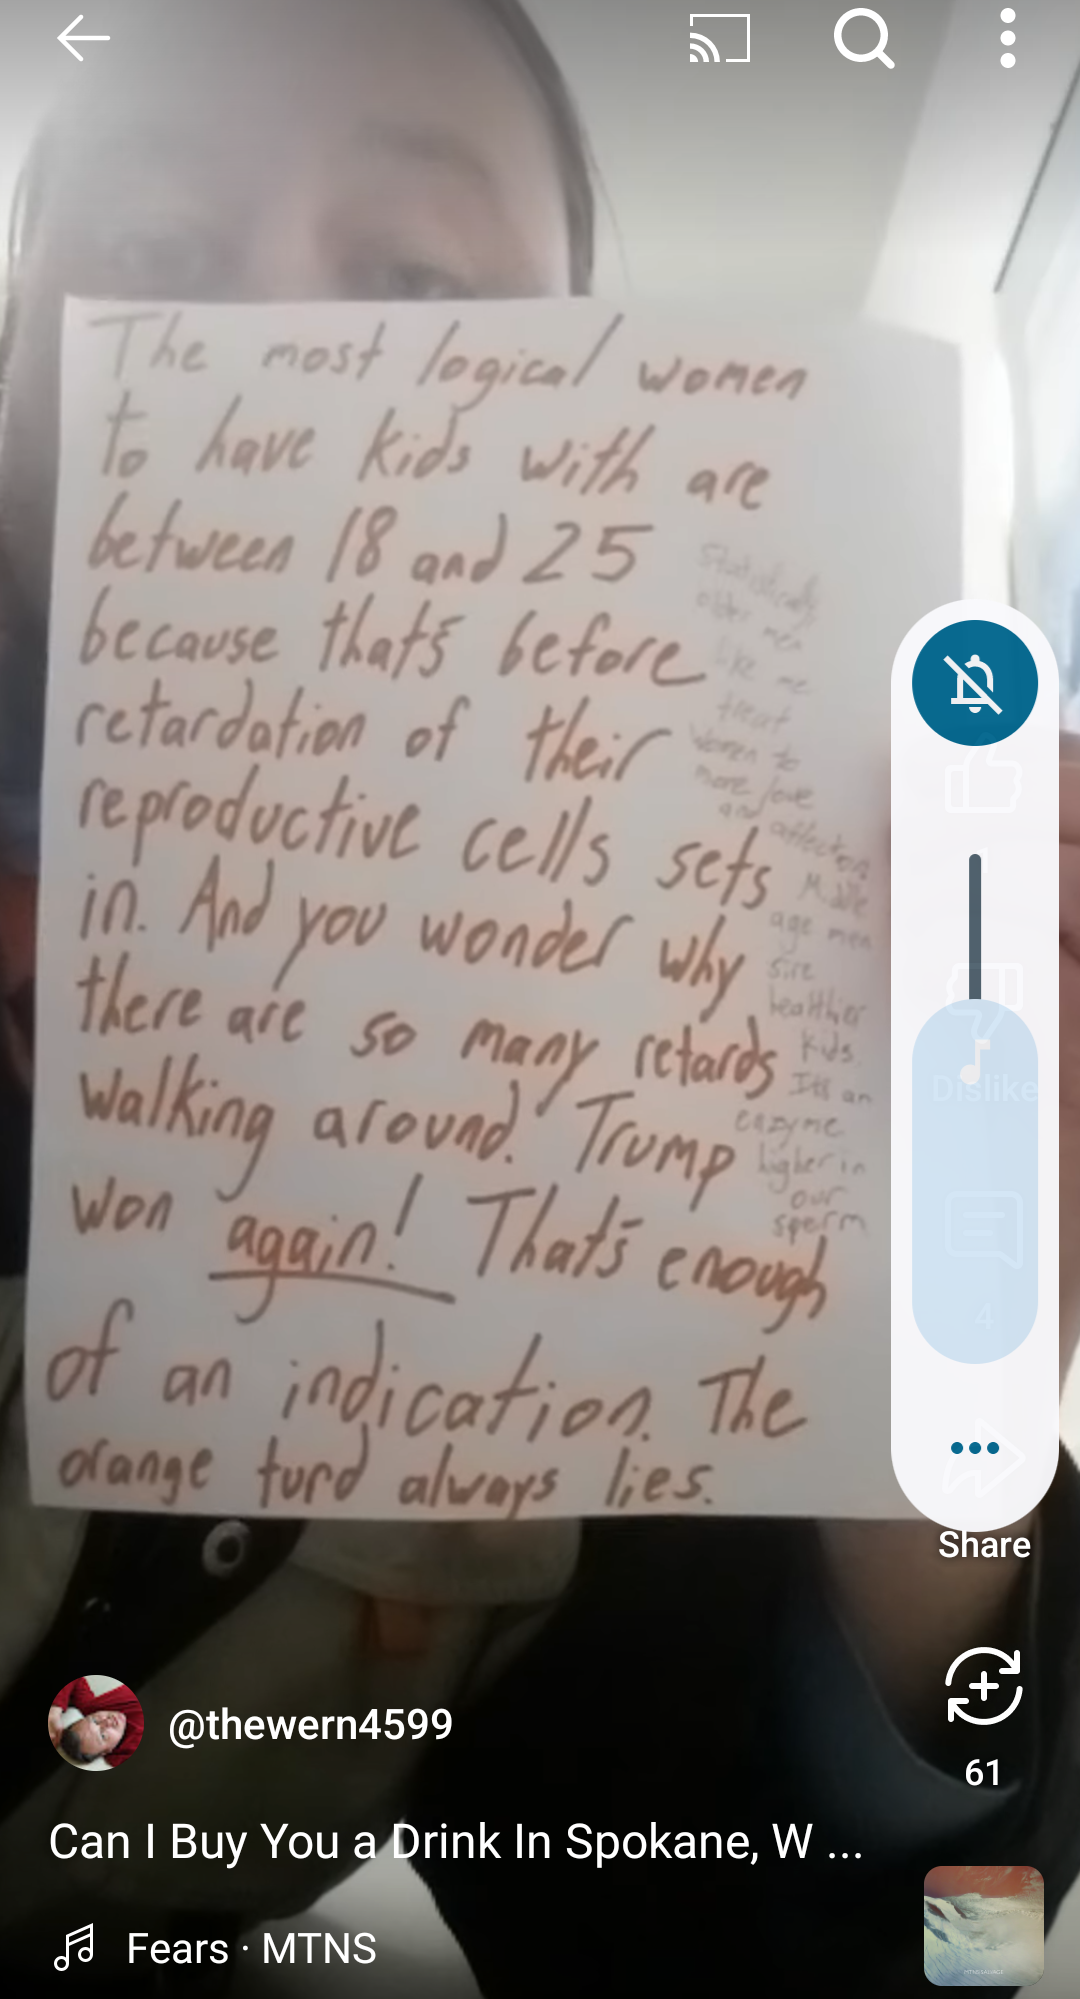 The most logical women
to have kids with are
between 18 and 25
because that's before
retardation of their
reproductive cells sets
in. And you wonder why
there are so many retards
walking around. Trump
won again! That's enough
of an indication. The
orange turd always lies.
Statistically
older men
like me
treat
women to
more love
and affection
Middle
age men
sire
healthier
kids.
Its an
enzyme
higher in
our
sperm
Dislike
4
Share
61
@thewern4599
Can I Buy You a Drink In Spokane, W ...
Fears · MTNS